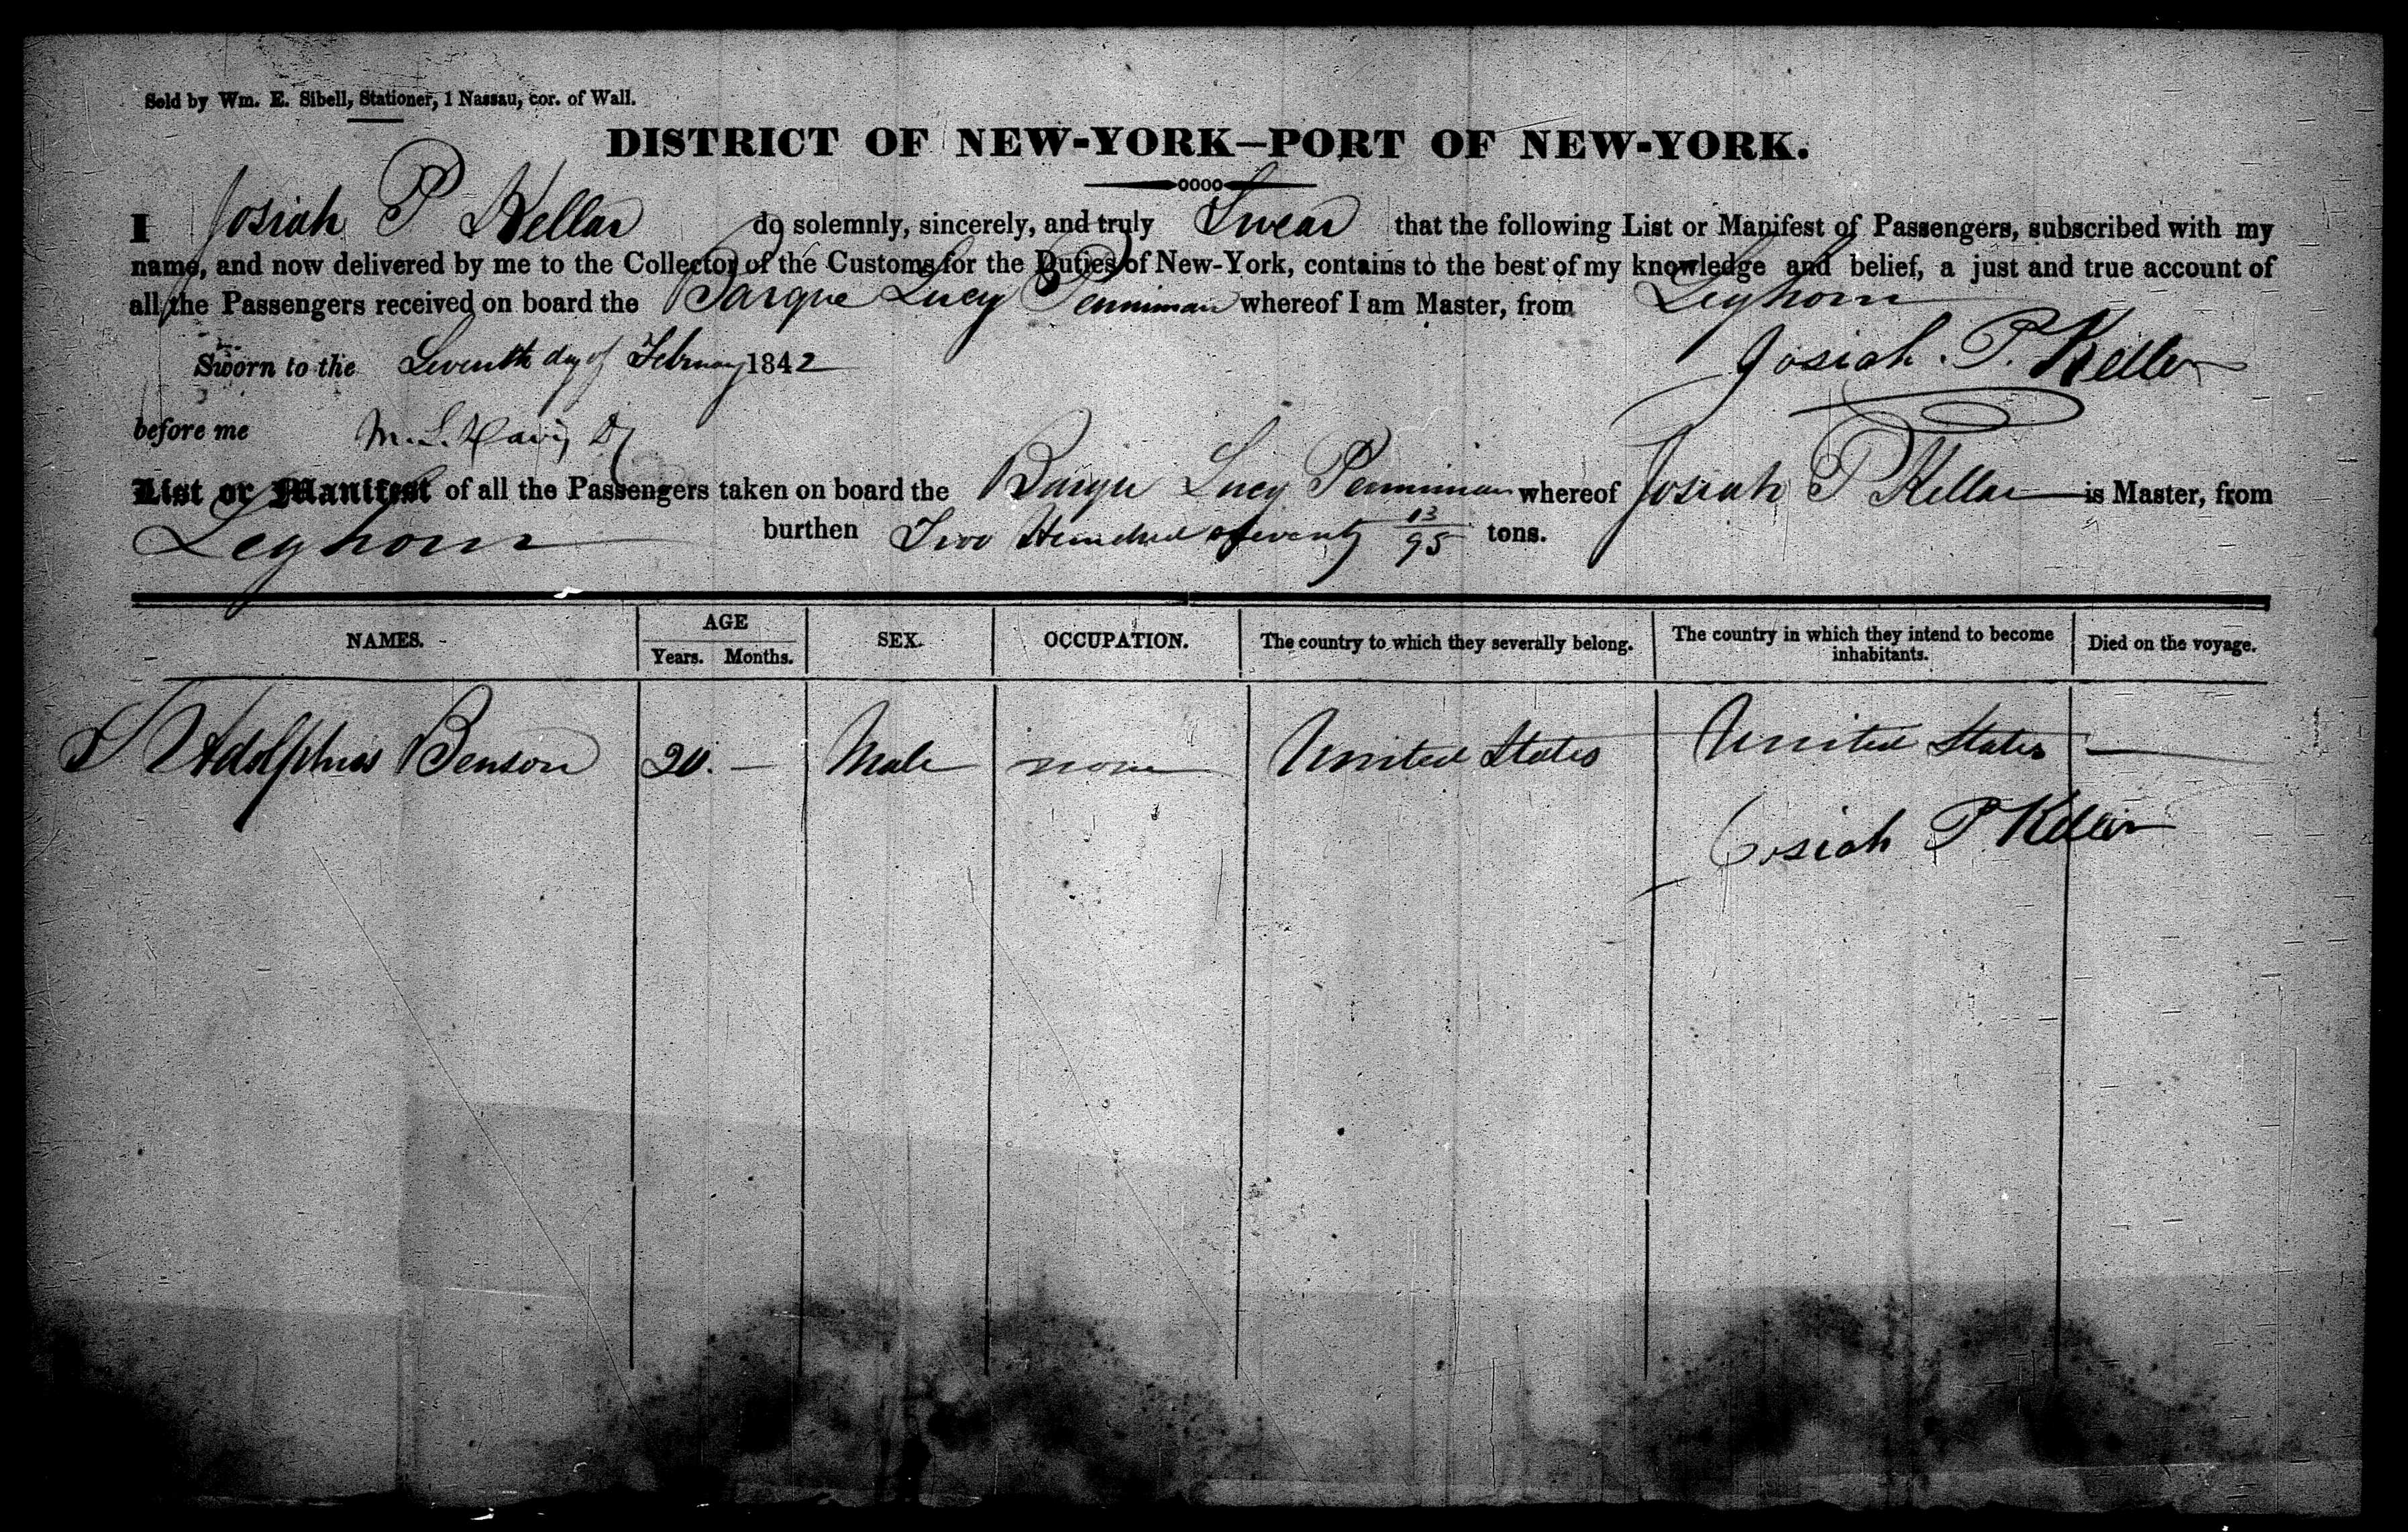 Sold by Wm. E. Sibell, Stationer, 1 Nassau, cor. of Wall.
DISTRICT OF NEW-YORK—PORT OF NEW-YORK.
I Josiah P Kellar do solemnly, sincerely, and truly Swear that the following List or Manifest of Passengers, subscribed with my
name, and now delivered by me to the Collector of the Customs for the Duties of New-York, contains to the best of my knowledge and belief, a just and true account of
all the Passengers received on board the Barque Lucy Penniman whereof I am Master, from Leghorn
Sworn to the Seventh day of February 1842 Josiah P. Keller
before me M. L. Davis
List or Manifest of all the Passengers taken on board the Barque Lucy Penniman whereof Josiah P Kellar is Master, from
Leghorn burthen Two Hundred Seventy 13/95 tons.
NAMES. AGE Years. Months. SEX. OCCUPATION. The country to which they severally belong. The country in which they intend to become inhabitants. Died on the voyage.
Adolphus Benson 20. — Male none United States United States —
Josiah P Keller